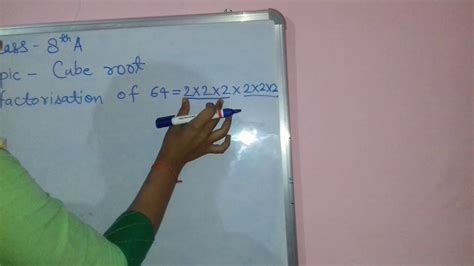 lass - 8th A
pic - Cube root
factorisation of 64 = 2×2×2 × 2×2×2